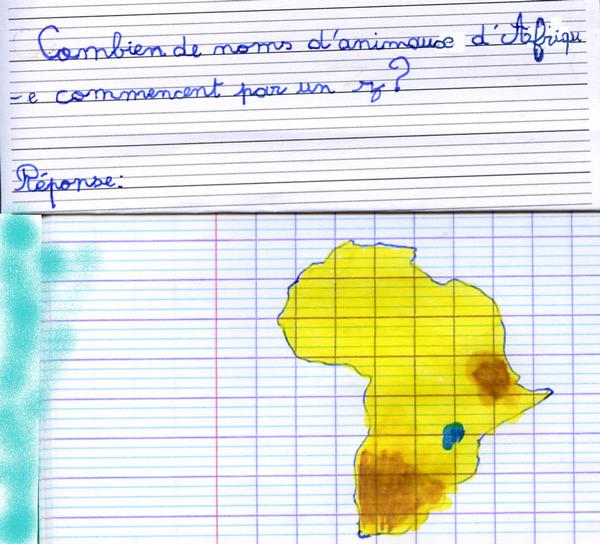 Combien de noms d'animaux d'Afriqu
-e commencent par un z?
Réponse: